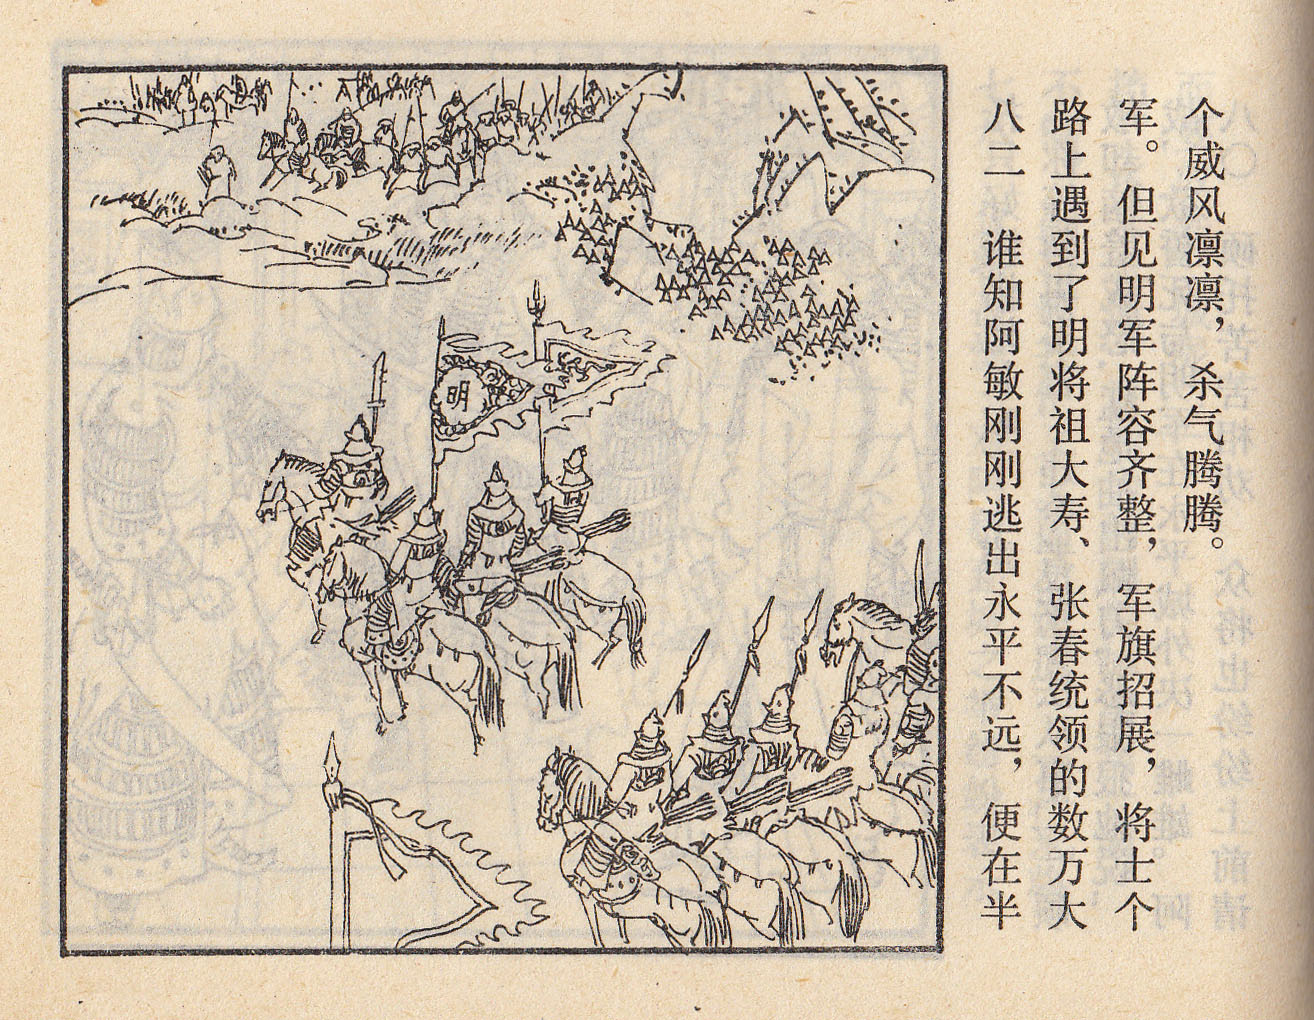 八二 谁知阿敏刚刚逃出永平不远，便在半
路上遇到了明将祖大寿、张春统领的数万大
军。但见明军阵容齐整，军旗招展，将士个
个威风凛凛，杀气腾腾。
明